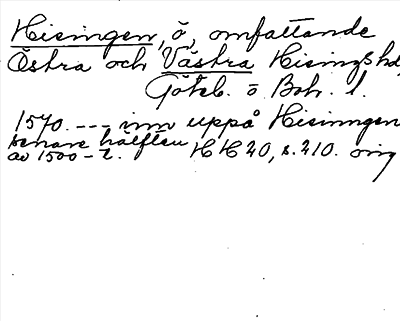 Hisingen, ö, omfattande
Östra och Västra Hisings hd,
Göteb. o. Boh. l.
1570. --- inn uppå Hisinngen
senare hälften
av 1500-t. HH 20, s. 210. orig